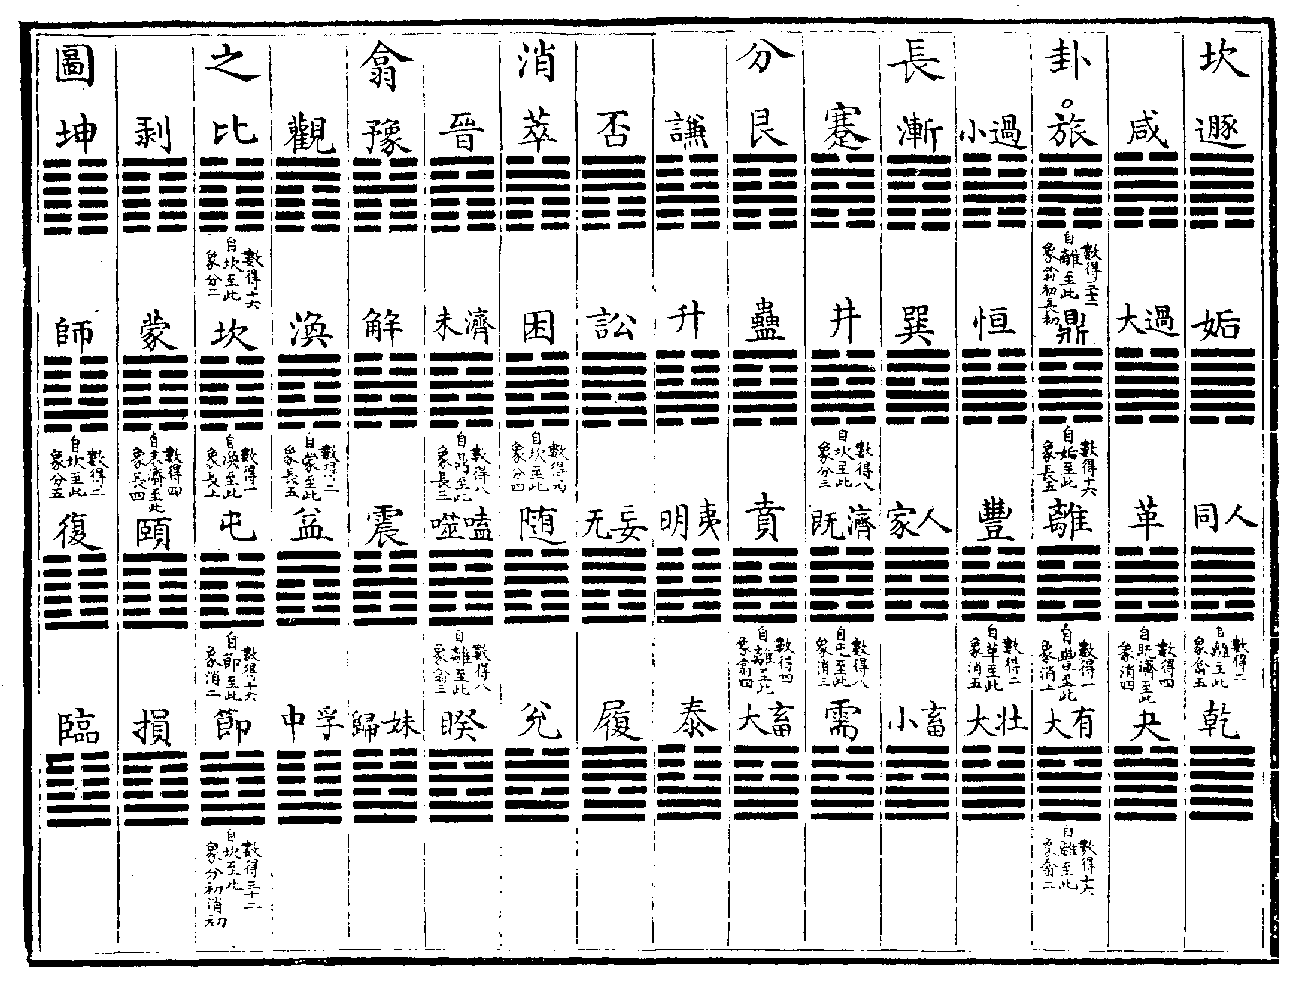 坎卦長分消翕之圖
遯 咸 旅 小過 漸 蹇 艮 謙 否 萃 晉 豫 觀 比 剥 坤
數得三十二
自離至此
象翕初長初
數得十六
自坎至此
象分二
姤 大過 鼎 恒 巽 井 蠱 升 訟 困 未濟 解 渙 坎 蒙 師
數得十六
自姤至此
數得八
自坎至此
象分三
數得四
自坎至此
象分四
數得八
自鼎至此
象長三
數得二
自蒙至此
象長五
數得一
自渙至此
象長上
數得四
自未濟至此
象長四
數得二
自坎至此
象分五
同人 革 離 豐 家人 既濟 賁 明夷 无妄 随 噬嗑 震 益 屯 頤 復
數得二
自離至此
象翕五
數得四
自既濟至此
象消四
數得一
自豐至此
象消上
數得二
自革至此
象消五
數得八
自屯至此
象消三
數得四
自離至此
象翕四
數得八
自離至此
象翕三
數得十六
自節至此
象消二
乾 夬 大有 大壯 小畜 需 大畜 泰 履 兌 睽 歸妹 中孚 節 損 臨
數得十六
自離至此
象翕二
數得三十二
自坎至此
象分初消初